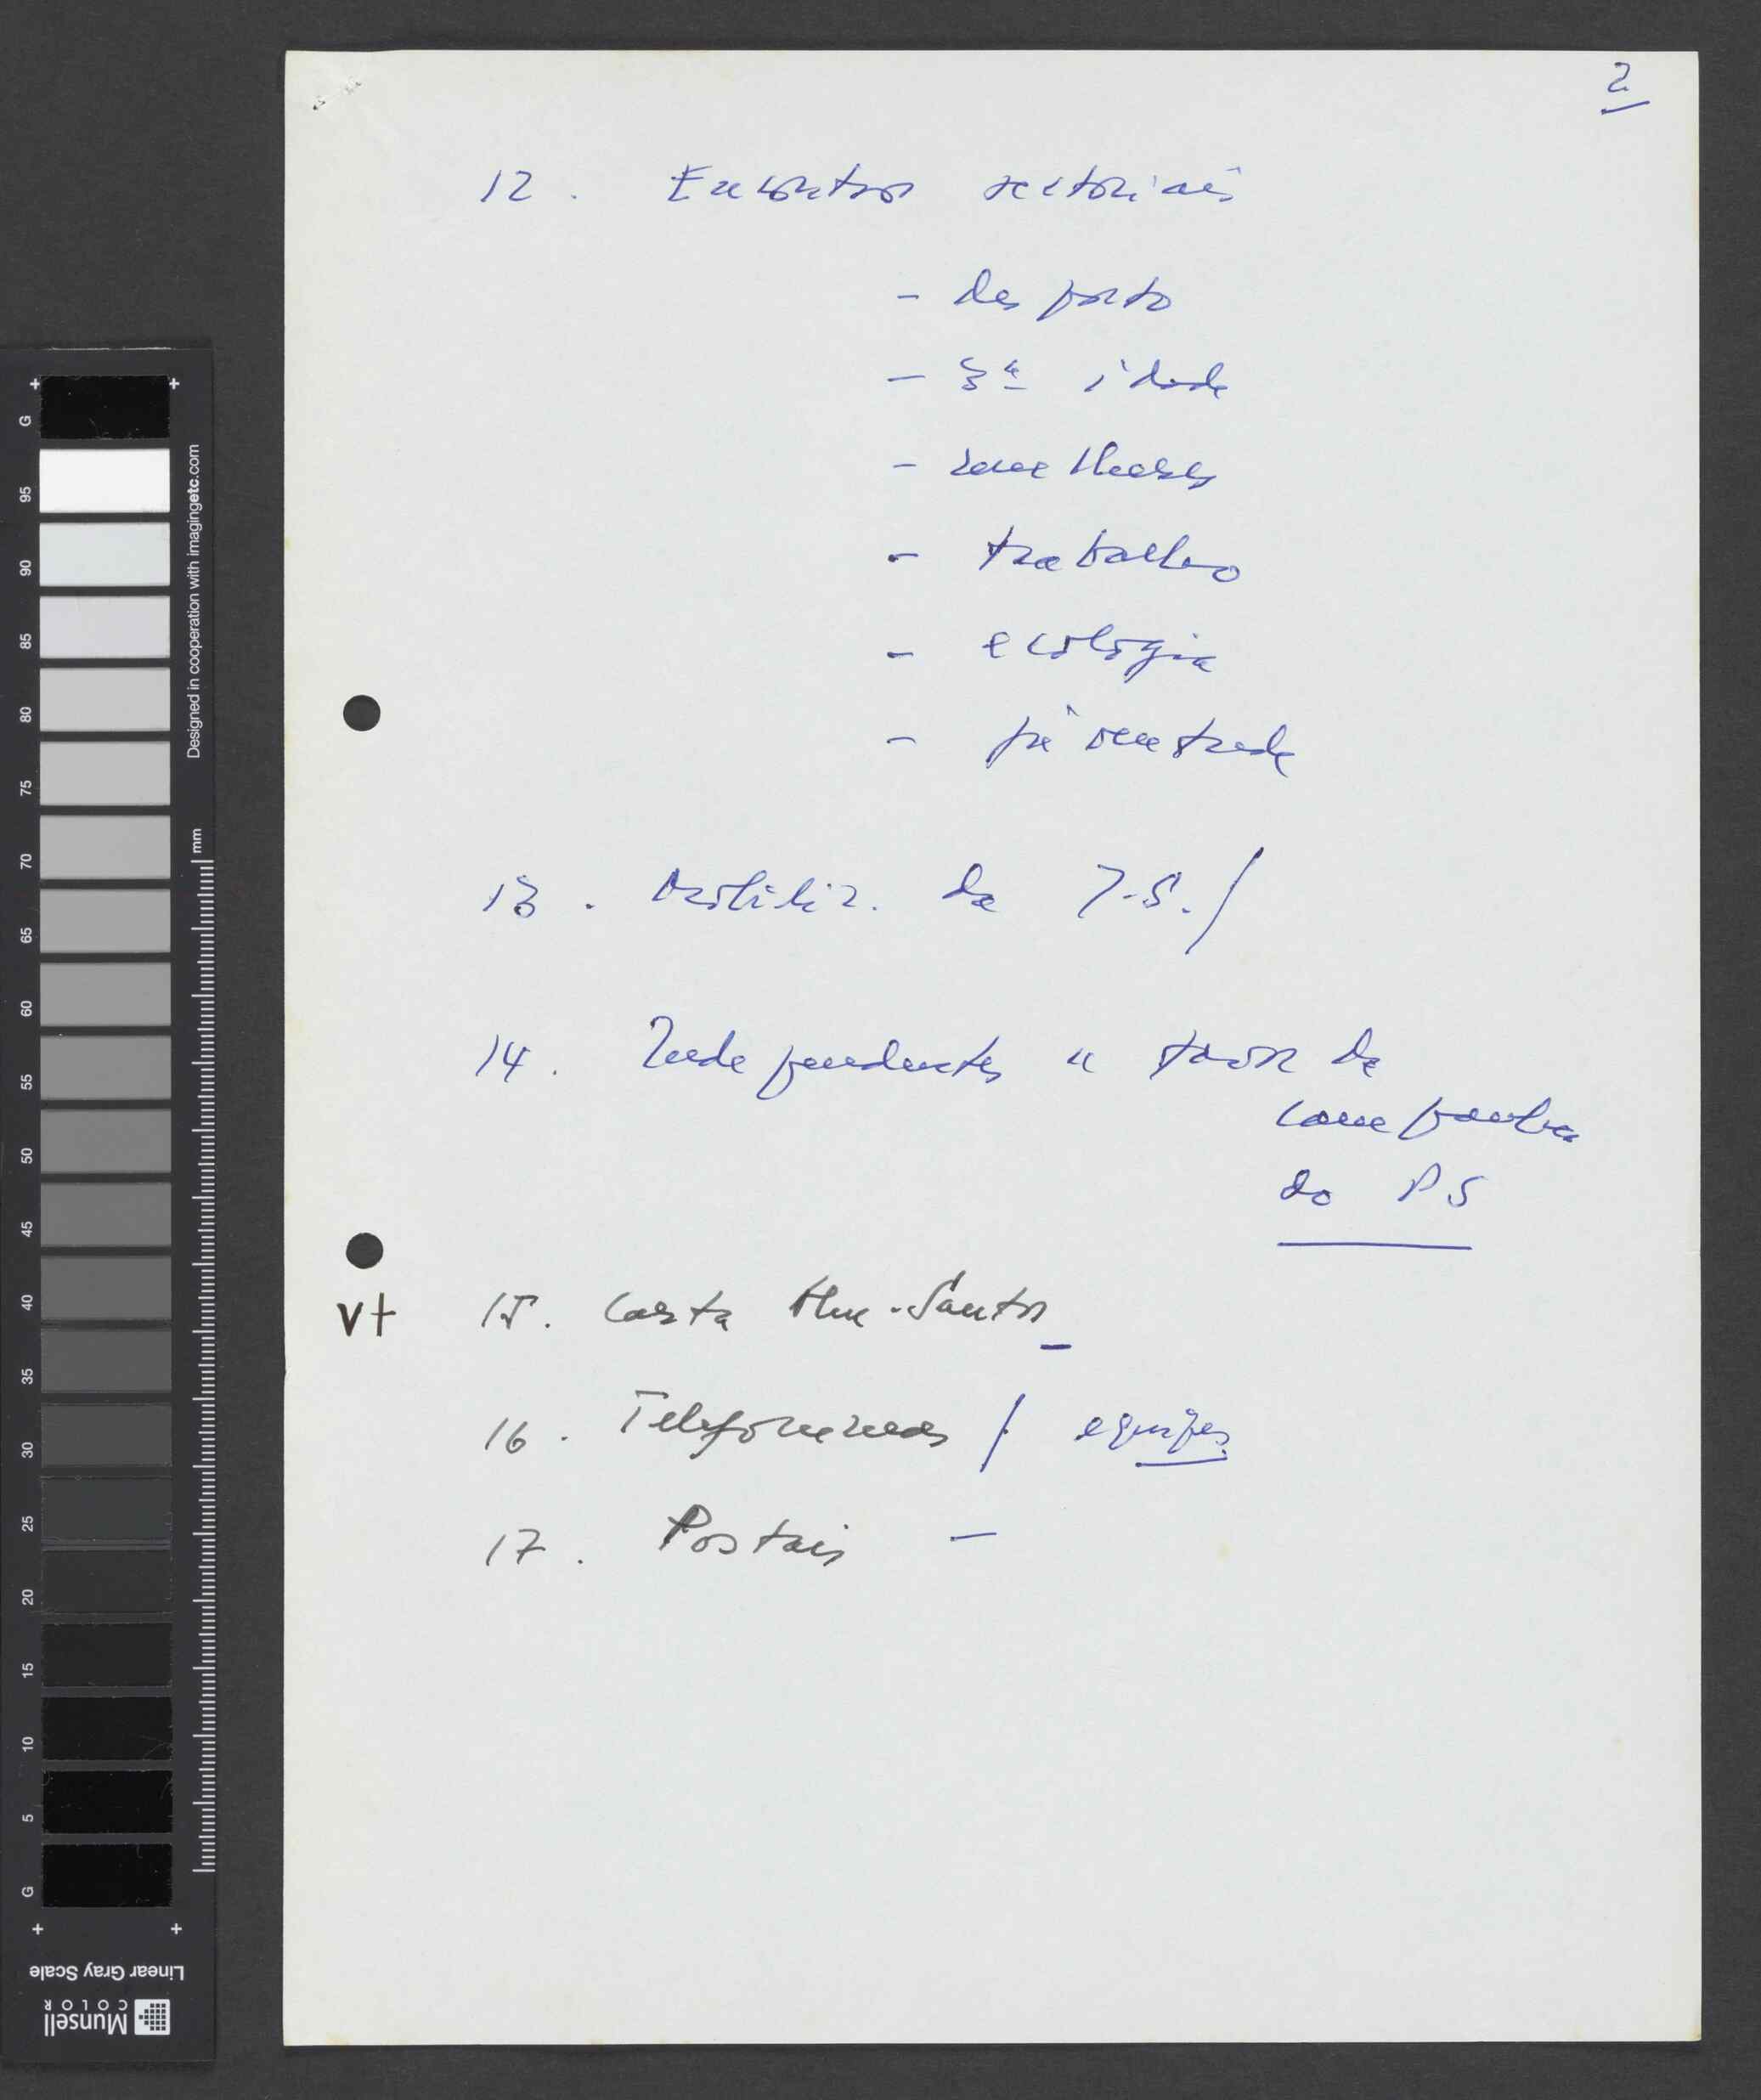 2
12. Encontros sectoriais
- desporto
- 3ª idade
- mulheres
- trabalho
- ecologia
- juventude
13. Mobiliz. da J.S./
14. Independentes a favor da
campanha
do PS
Vt 15. Carta Alm. Santos
16. Telefonemas / equipas
17. Postais -
Designed in cooperation with imagingetc.com
mm
G 95 90 85 80 75 70 65 60 55 50 45 40 35 30 25 20 15 10 5 G
Linear Gray Scale
Munsell
COLOR